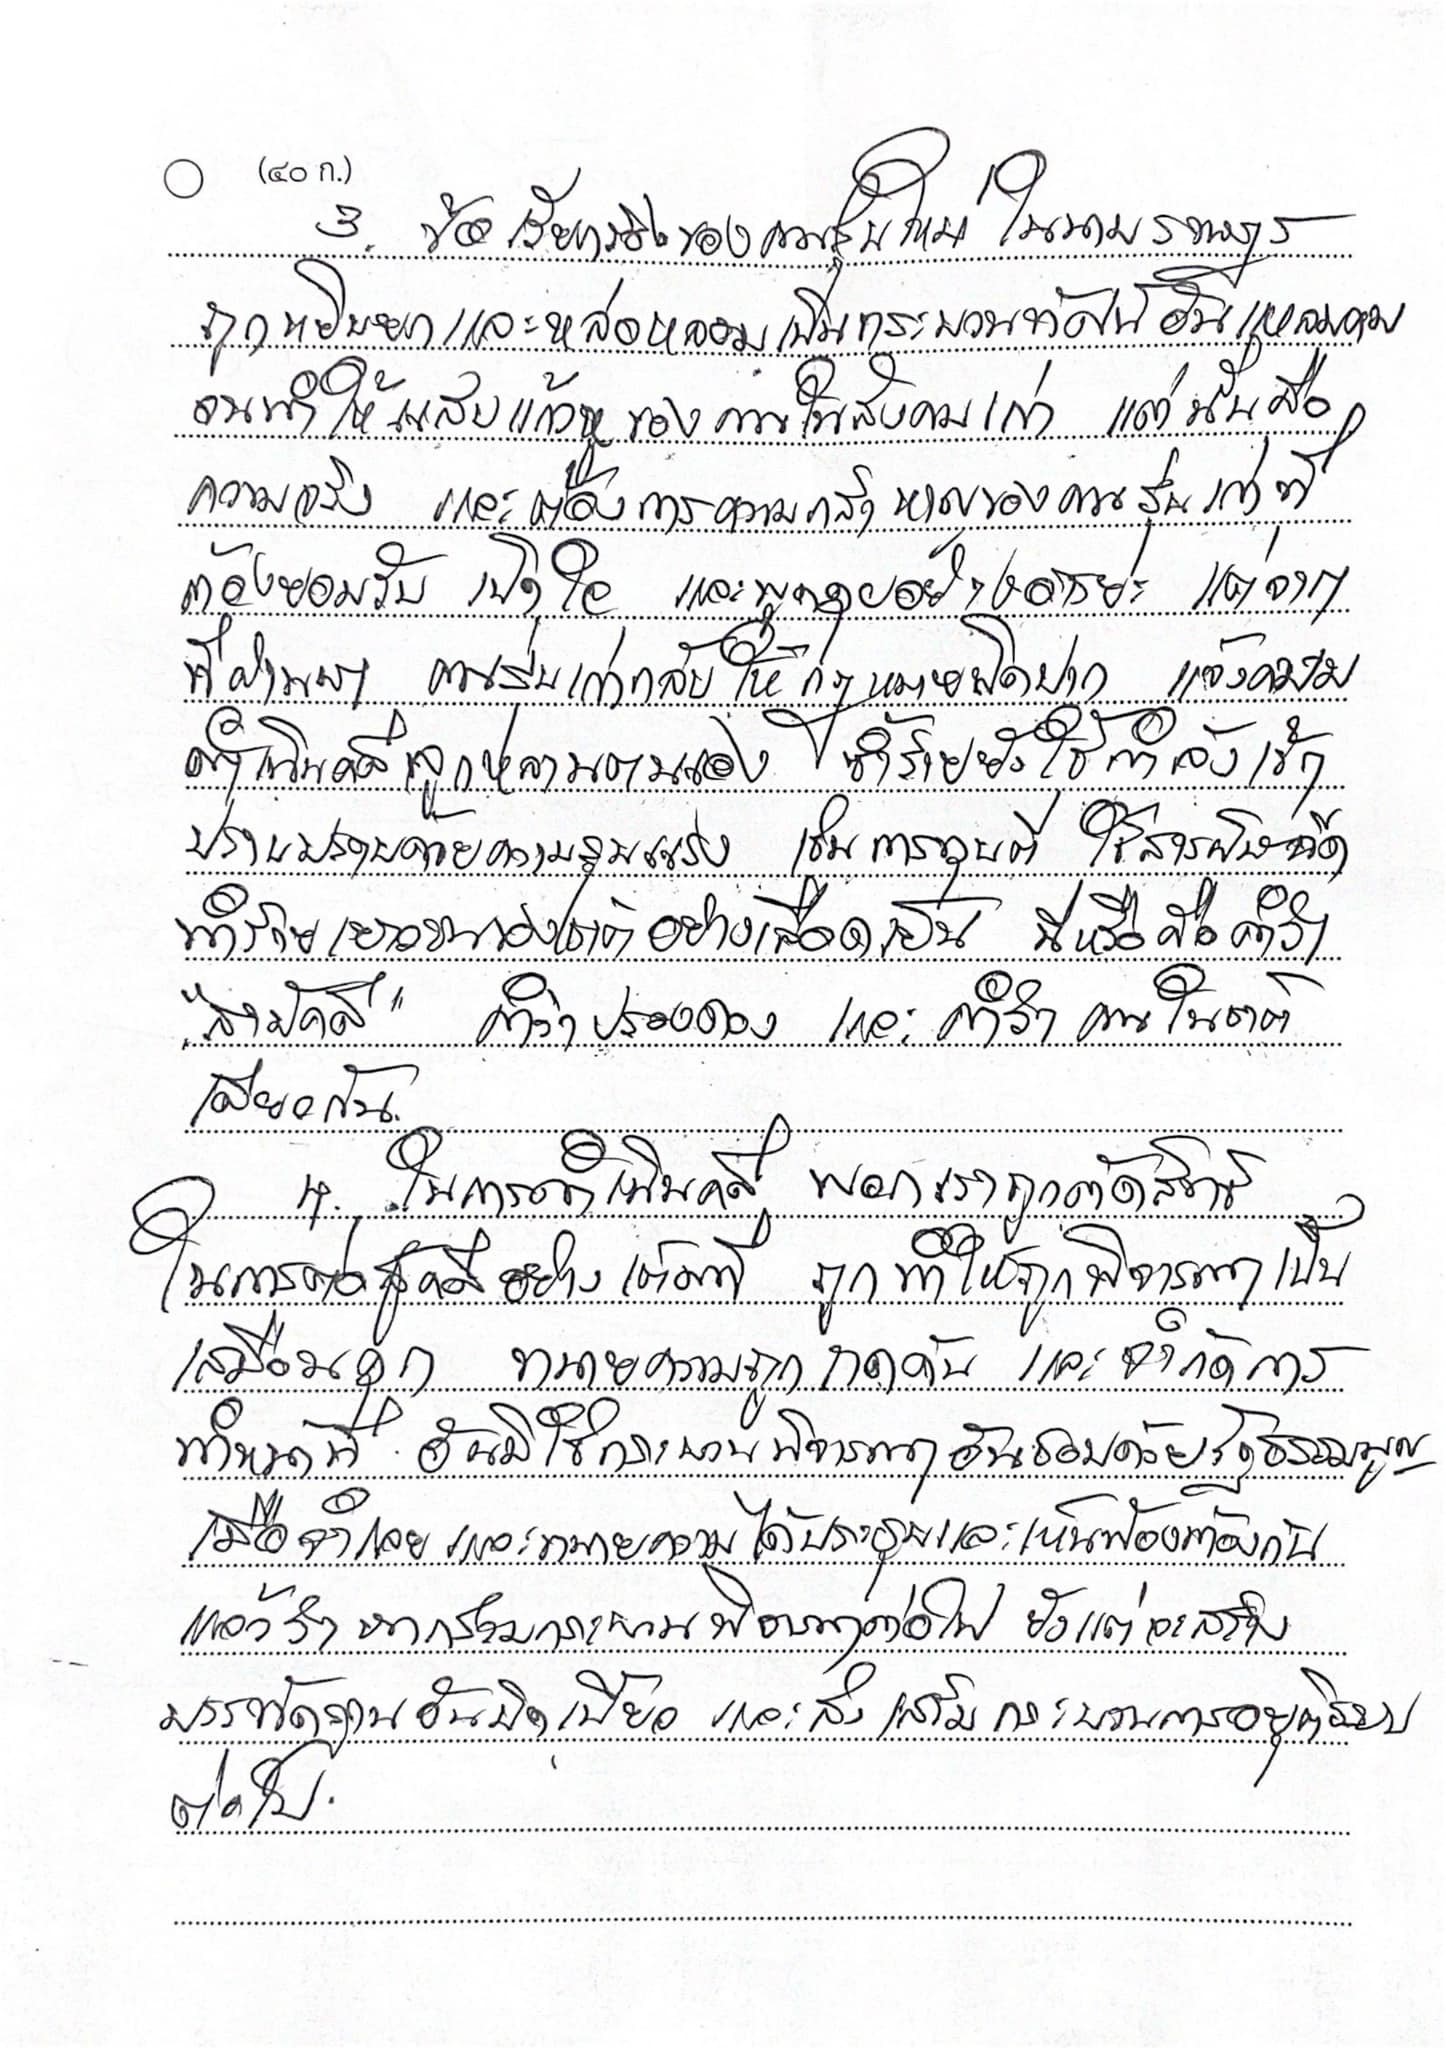 (๔๐ ก.)
3. ข้อเรียกร้องของคนรุ่นใหม่ ในนามราษฎร
ถูกหยิบยกและหล่อหลอมเป็นกระบวนทัศน์อันแหลมคม
จนทำให้แสบแก้วหูของคนในสังคมเก่า แต่นั่นคือ
ความจริง และต้องการความกล้าหาญของคนรุ่นเก่าที่
ต้องยอมรับ เปิดใจ และพูดคุยอย่างอารยะ แต่จาก
ที่ผ่านมา คนรุ่นเก่ากลับใช้กฎหมายปิดปาก แจ้งความ
ดำเนินคดีลูกหลานตนเอง ซ้ำร้ายยังใช้กำลังเข้า
ปราบปรามด้วยความรุนแรง เช่นการทุบตี ใช้สารพิษฉีด
ทำร้ายเยาวชนของชาติอย่างเลือดเย็น นี่หรือคือคำว่า
"สามัคคี" คำว่าปรองดอง และ คำว่า คนในชาติ
เดียวกัน.
4. ในการดำเนินคดี พวกเราถูกตัดสิทธิ
ในการต่อสู้คดีอย่างเต็มที่ ถูกทำให้ถูกพิจารณาเป็น
เสมือนคุก ทนายความถูกกดดัน และจำกัดการ
ทำหน้าที่ อันมิใช่กระบวนพิจารณาอันชอบด้วยรัฐธรรมนูญ
เมื่อจำเลยและทนายความได้ประชุมและเห็นพ้องต้องกัน
แล้วว่า หากร่วมกระบวนพิจารณาต่อไป ยังแต่จะสร้าง
บรรทัดฐานอันบิดเบี้ยว และส่งเสริมกระบวนการอยุติธรรม
ต่อไป.